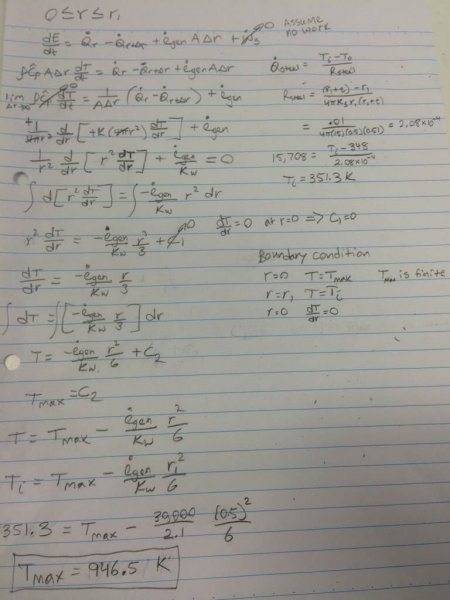 0 ≤ r ≤ r₁
dE/dt = Q̇r - Q̇r+Δr + ėgen AΔr + Ẇs → 0 Assume no work
ρCp AΔr dT/dt = Q̇r - Q̇r+Δr + ėgen AΔr
lim Δr→0 ρC dT/dt → 0 = 1/(AΔr) (Q̇r - Q̇r+Δr) + ėgen
+ 1/(4πr²) d/dr [+K(4πr²) dT/dr] + ėgen
1/r² d/dr [r² dT/dr] + ėgen/Kw = 0
∫ d[r² dT/dr] = ∫ -ėgen/Kw r² dr
r² dT/dr = -ėgen/Kw r³/3 + C₁ → 0 dT/dr = 0 at r=0 => C₁=0
dT/dr = -ėgen/Kw r/3
∫ dT = ∫ [-ėgen/Kw r/3] dr
T = -ėgen/Kw r²/6 + C₂
Tmax = C₂
T = Tmax - ėgen/Kw r²/6
Ti = Tmax - ėgen/Kw r₁²/6
351.3 = Tmax - 30,000/2.1 (0.5)²/6
Tmax = 946.5 K
Q̇steel = (Ti - To)/Rsteel
Rsteel = ((r₁+t) - r₁)/(4πKs r₁(r₁+t))
= .01/(4π(15)(0.5)(0.51)) = 2.08×10⁻⁴
15,708 = (Ti - 348)/(2.08×10⁻⁴)
Ti = 351.3 K
Boundary condition
r=0 T=Tmax Tmax is finite
r=r₁ T=Ti
r=0 dT/dr=0